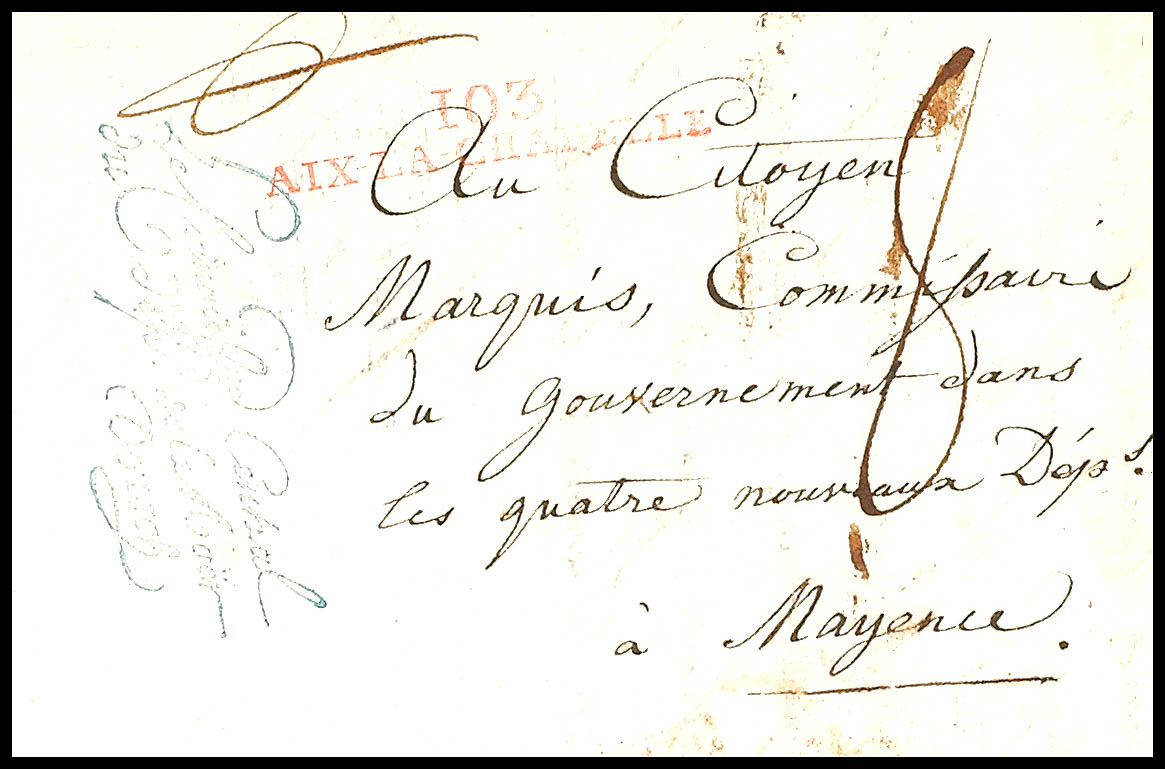 103
AIX-LA-CHAPELLE
Au Citoyen
Marquis, Commissaire
du Gouvernement dans
les quatre nouveaux Dép.s
à Mayence.
8